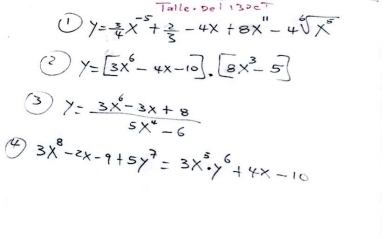 Taller del 13 oct
① y = 3/4 x⁻⁵ + 2/3 - 4x + 8x¹¹ - 4 ⁶√x⁵
② y = [3x⁶ - 4x - 10] . [8x³ - 5]
③ y = (3x⁶ - 3x + 8) / (5x⁴ - 6)
④ 3x⁸ - 2x - 9 + 5y⁷ = 3x⁵·y⁶ + 4x - 10